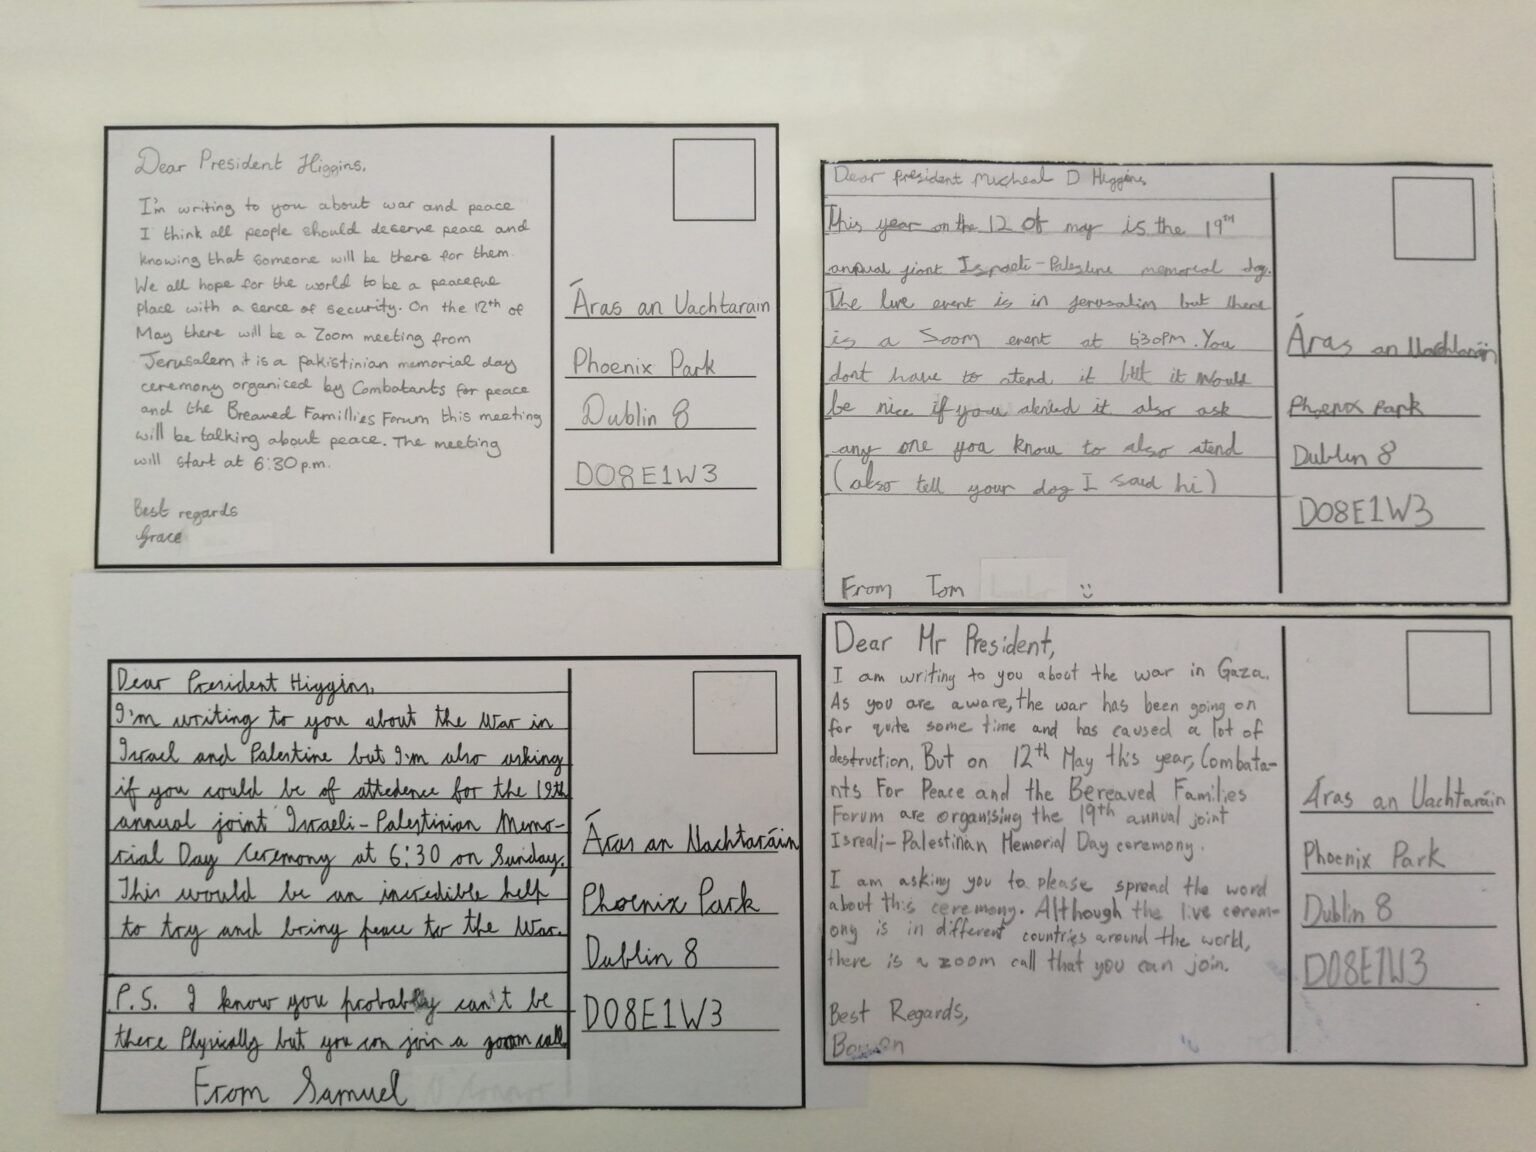 Dear President Higgins,
I'm writing to you about war and peace
I think all people should deserve peace and
knowing that someone will be there for them.
We all hope for the world to be a peaceful
place with a sence of security. On the 12th of
May there will be a Zoom meeting from
Jerusalem it is a pakistinian memorial day
ceremony organised by Combatants for peace
and the Breaved Famillies Forum this meeting
will be talking about peace. The meeting
will start at 6:30 p.m.
Best regards
Grace
Áras an Uachtarain
Phoenix Park
Dublin 8
D08E1W3
Dear president Micheal D Higgins
This year on the 12 of may is the 19TH
annual joint Israeli-Palestine memorial day.
The live event is in Jerusalim but there
is a Zoom event at 6:30PM. You
dont have to atend it but it would
be nice if you atented it also ask
any one you know to also atend
(also tell your dog I said hi)
From Tom :)
Áras an Uachtaráin
Phoenix Park
Dublin 8
D08E1W3
Dear President Higgins,
I'm writing to you about the war in
Israel and Palestine but I'm also asking
if you could be of attedence for the 19th
annual joint Israeli-Palestinian Memo-
rial Day Ceremony at 6:30 on Sunday.
This would be an incredible help
to try and bring peace to the war.
P.S. I know you probably can't be
there Physically but you can join a zoom call.
From Samuel
Áras an Uachtaráin
Phoenix Park
Dublin 8
D08E1W3
Dear Mr President,
I am writing to you about the war in Gaza.
As you are aware, the war has been going on
for quite some time and has caused a lot of
destruction. But on 12th May this year, Combata-
nts For Peace and the Bereaved Families
Forum are organising the 19th annual joint
Isreali-Palestinan Memorial Day ceremony.
I am asking you to please spread the word
about this ceremony. Although the live cerem-
ony is in different countries around the world,
there is a zoom call that you can join.
Best Regards,
Áras an Uachtaráin
Phoenix Park
Dublin 8
D08E1W3